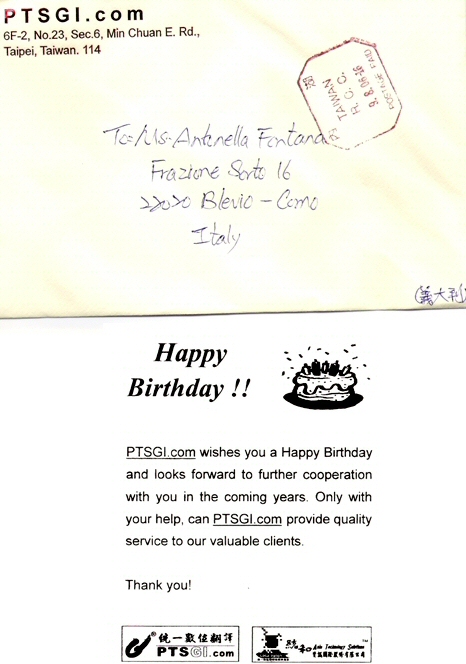 PTSGI.com
6F-2, No.23, Sec.6, Min Chuan E. Rd.,
Taipei, Taiwan. 114
TAIWAN
R. O. C.
9.8.06-16
POSTAGE PAID
To: Ms. Antonella Fontana
Frazione Sorto 16
22020 Blevio - Como
Italy
(義大利)
Happy
Birthday !!
PTSGI.com wishes you a Happy Birthday
and looks forward to further cooperation
with you in the coming years. Only with
your help, can PTSGI.com provide quality
service to our valuable clients.
Thank you!
統一數位翻譯
PTSGI.com
Technology Solutions
TM